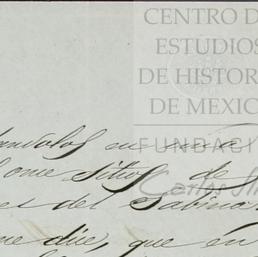 CENTRO D
ESTUDIOS
DE HISTOR
DE MEXIC
FUNDACI
Carlos Sl
once sitios de
es del Sabino
me dice, que en